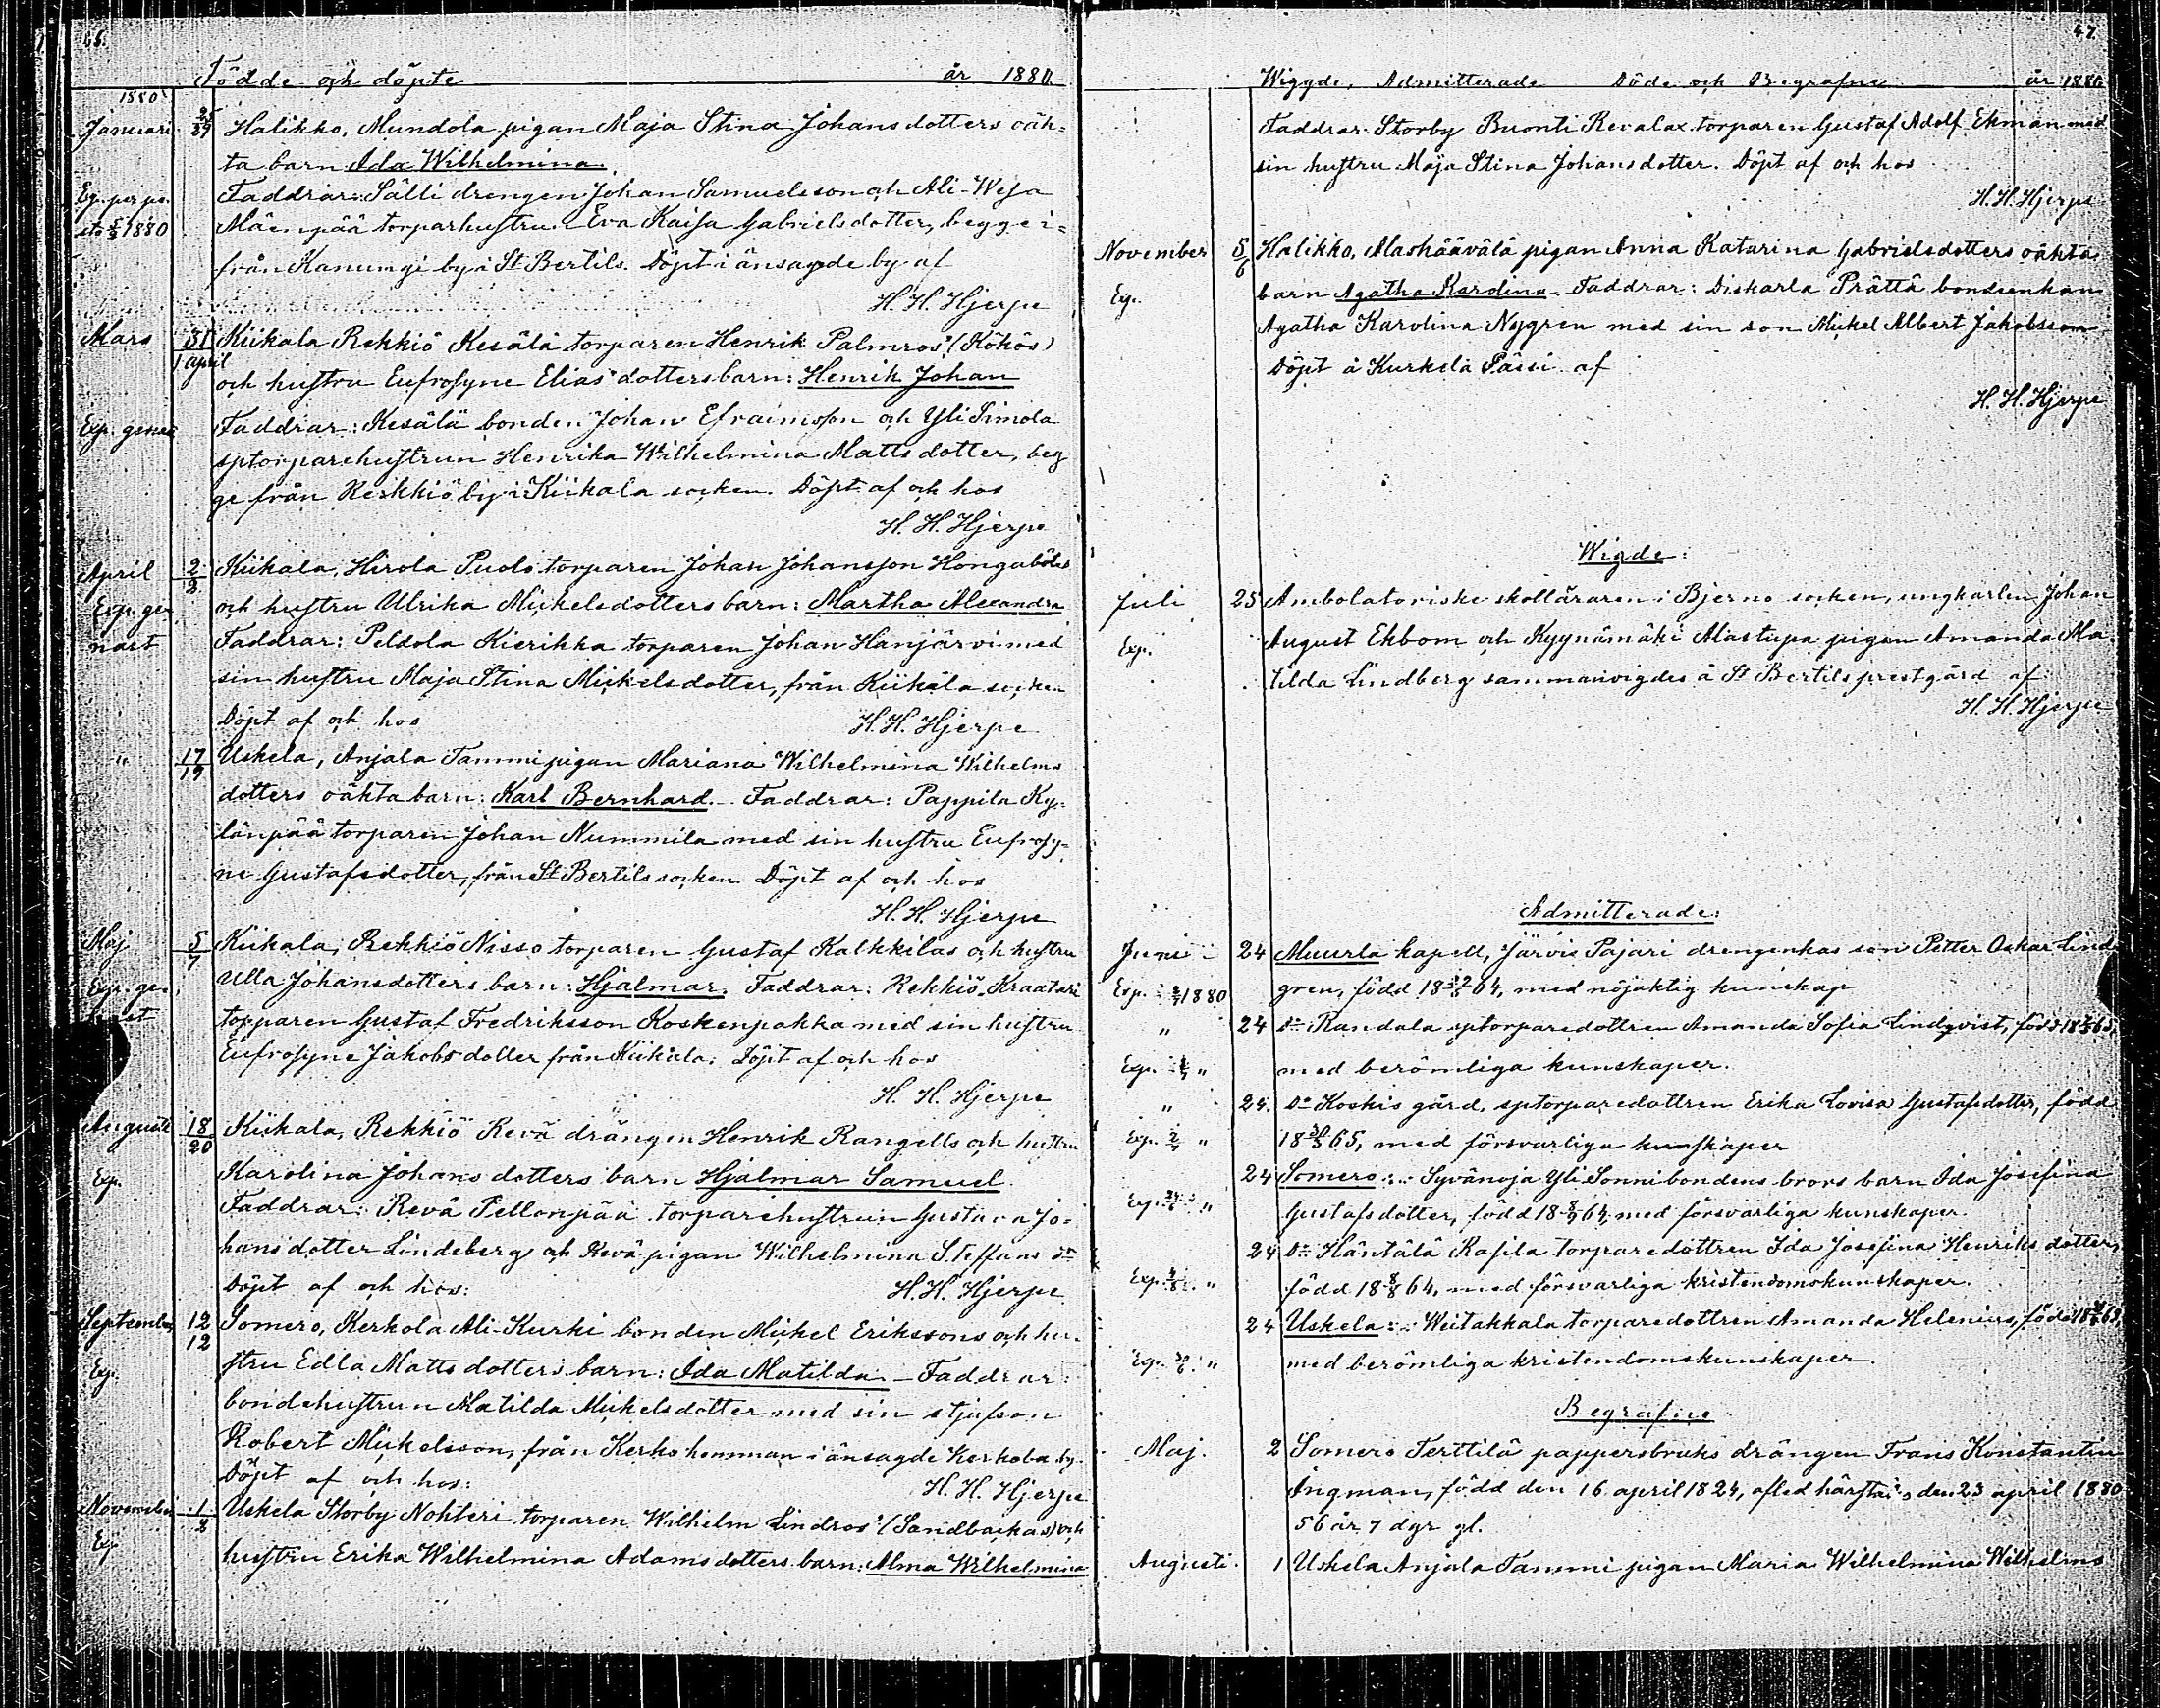 Födde och döpte år 1880
1880
Januari 25/27 Halikko, Mundola pigan Maja Stina Johansdotters oäk-
ta barn Ida Wilhelmina.
Faddrar: Sälli drengen Johan Samuelsson och Ali-Weja
1880 Mäenpää torparhustrun Eva Kaisa Gabrielsdotter, begge i-
från Kanumgi by i St Bertils. Döpt i änsagde by af
H. H. Hjerpe
Mars 31/1 april Kiikala Rekkiö Kesälä torparen Henrik Palmros' (Kökös)
och hustru Eufrosyne Elias dotters barn: Henrik Johan
Exp. Faddrar: Kesälä bonden Johan Efraimsson och Yli Simola
sptorparehustrun Henrika Wilhelmina Matts dotter, beg
ge från Rekkiö by i Kiikala socken. Döpt af och hos
H. H. Hjerpe
April 2/2 Kiikala, Hirola Puolo torparen Johan Johansson
Exp. ge och hustru Ulrika Mickelsdotters barn: Martha Alexandra
nast Faddrar: Peldola Kierikka torparen Johan Hanjärvi med
sin hustru Maja Stina Mickelsdotter, från Kiikala socken
Döpt af och hos H. H. Hjerpe
" 17/19 Uskela, Anjala Tammi pigan Mariana Wilhelmina Wilhelms
dotters oäkta barn: Karl Bernhard. Faddrar: Pappila Ky-
länpää torparen Johan Nummila med sin hustru Eufrosy-
ne Gustafsdotter, från St Bertils socken. Döpt af och hos
H. H. Hjerpe
Maj 5/7 Kiikala, Rekkiö Nisso torparen Gustaf Kalkkilas och hustru
Exp. ge Ulla Johansdotters barn: Hjalmar. Faddrar: Rekkiö Kraatari
torparen Gustaf Fredriksson Koskenpakka med sin hustru
Eufrosyne Jakobsdotter från Kiikala. Döpt af och hos
H. H. Hjerpe
Augusti 18/20 Kiikala, Rekkiö Revä drängen Henrik Rangells och hustru
Exp. Karolina Johans dotters barn Hjalmar Samuel.
Faddrar: Revä Pellonpää torparehustrun Gustava Jo-
hansdotter Lindeberg och Revä pigan Wilhelmina Steffans dr
Döpt af och hos: H. H. Hjerpe
September 12/12 Somero, Kerkola Ali-Kurki bonden Mickel Erikssons och hu-
Ep. stru Edla Matts dotters barn: Ida Matilda - Faddrar:
bondehustrun Matilda Mickelsdotter med sin stjufson
Robert Mickelsson, från Kerko hemman i änsagde Kerkola by.
Döpt af och hos: H. H. Hjerpe
November 1/2 Uskela Storby Nohteri torparen Wilhelm Lindros' (Sandbackas) och
Ep hustru Erika Wilhelmina Adamsdotters barn: Alma Wilhelmina
47
Wiggde, Admitterade Döde och Begrafne år 1880
Faddrar: Storby Buonti Revalax torparen Gustaf Adolf Ekman med
sin hustru Maja Stina Johansdotter. Döpt af och hos
H. H. Hjerpe
November 5/6 Halikko, Maskäävälä pigan Anna Katarina Gabrielsdotters oäkta
Ep. barn Agatha Karolina. Faddrar: Diskarla Prättä bondeenkan
Agatha Karolina Nygren med sin son Mickel Albert Jakobsson
Döpt å Kurkela Pässi af
H. H. Hjerpe
Wigde:
Juli 25 Ambolatoriske skolläraren i Bjerno socken, ungkarlen Johan
Exp. August Ekbom och Kyynämäki Alastupa pigan Amanda Ma
tilda Lindberg sammanvigdes å St Bertils prestgård af
H. H. Hjerpe
Admitterade:
Juni 24 Muurla kapell, Järvis Pajari drengenkas son Petter Oskar Lind
Exp. 1880 gren, född 18 64, med nöjaktig kunskap
" 24 do Randala sptorparedottren Amanda Sofia Lindqvist, född 18 65,
Exp. " med berömliga kunskaper.
" 24. do Koskis gård, sptorparedottren Erika Lovisa Gustafsdotter, född
Exp. " 18 65, med försvarliga kunskaper
24 Somero: Syvänoja Yli Sonni bondens brors barn Ida Josefina
Exp. " Gustafsdotter, född 18 64, med försvarliga kunskaper.
24 do Häntälä Rasila torparedottren Ida Josefina Henriks dotter,
Exp. " född 18 8/8 64, med försvarliga kristendomskunskaper.
24 Uskela: Weitakkala torparedottren Amanda Helenius, född 18
Exp. " med berömliga kristendomskunskaper.
Begrafne
Maj. 2 Somero Terttilä pappersbruks drängen Frans Konstantin
Ingman, född den 16 april 1824, afled härstäi den 23 april 1880
56 år 7 dgr gl.
Augusti. 1 Uskela Anjala Tammi pigan Maria Wilhelmina Wilhelms